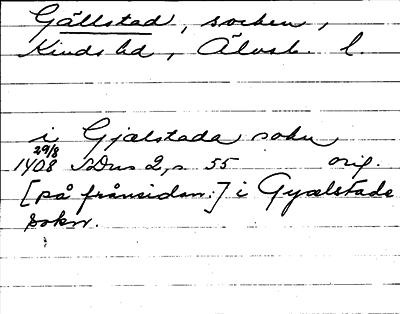 Gällstad, socken,
Kinds hd, Älvsb. l.
i Gjælstada sokn
29/8
1408 SDns 2, s. 55 orig.
[på frånsidan:] i Gyælstade
sokn.